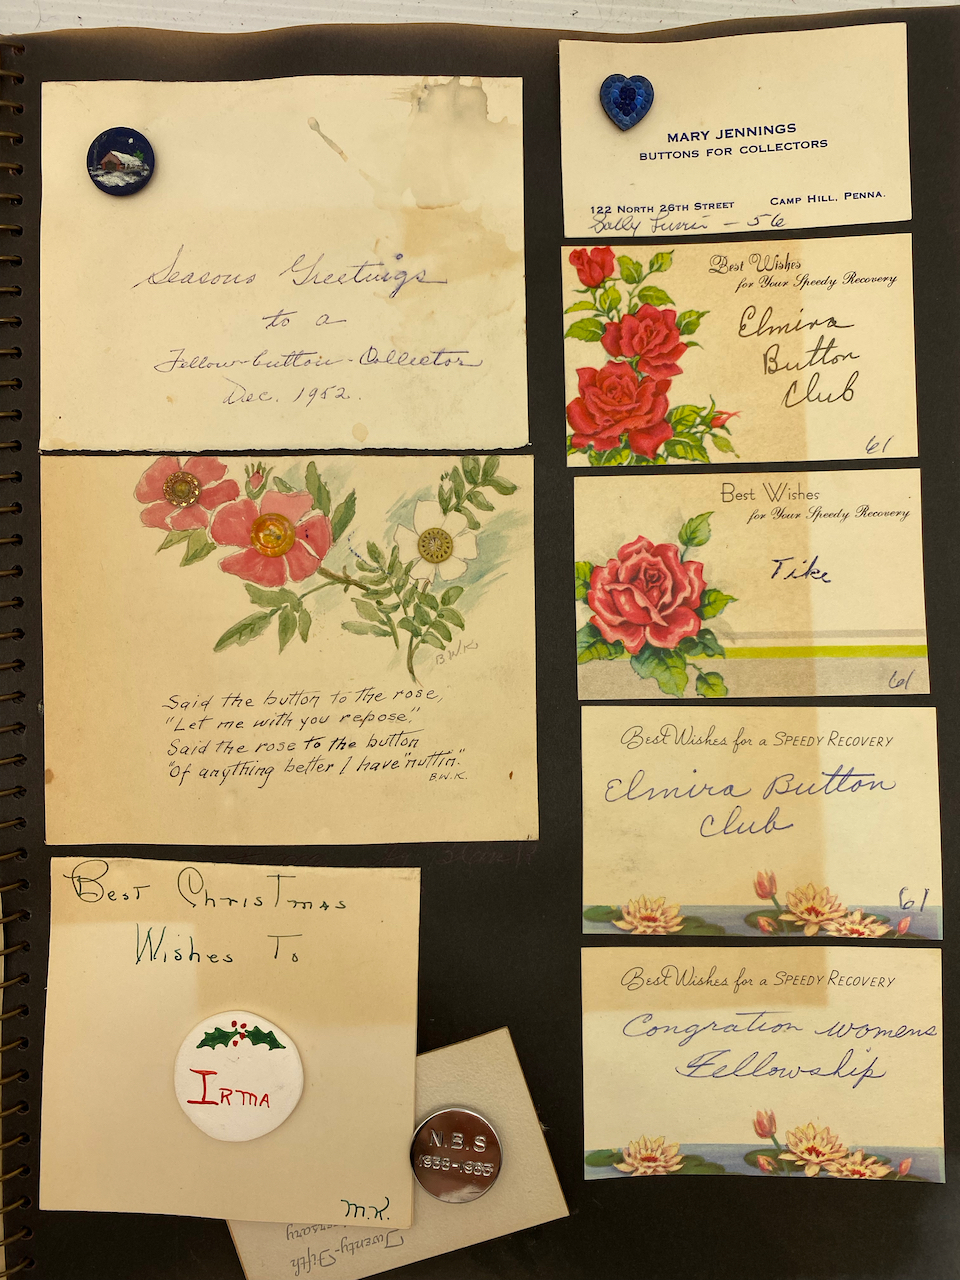 Seasons Greetings
to a
Fellow-button-Collector
Dec. 1952.
B W K
Said the button to the rose,
"Let me with you repose,"
Said the rose to the button
"Of anything better I have "nuttin."
B.W.K.
Best Christmas
Wishes To
IRMA
M.K.
N.B.S
1938-1963
Twenty-Fifth
MARY JENNINGS
BUTTONS FOR COLLECTORS
122 NORTH 26TH STREET CAMP HILL, PENNA.
Sally - 56
Best Wishes
for Your Speedy Recovery
Elmira
Button
Club
61
Best Wishes
for Your Speedy Recovery
Tike
61
Best Wishes for a SPEEDY RECOVERY
Elmira Button
Club
61
Best Wishes for a SPEEDY RECOVERY
Congration womens
Fellowship